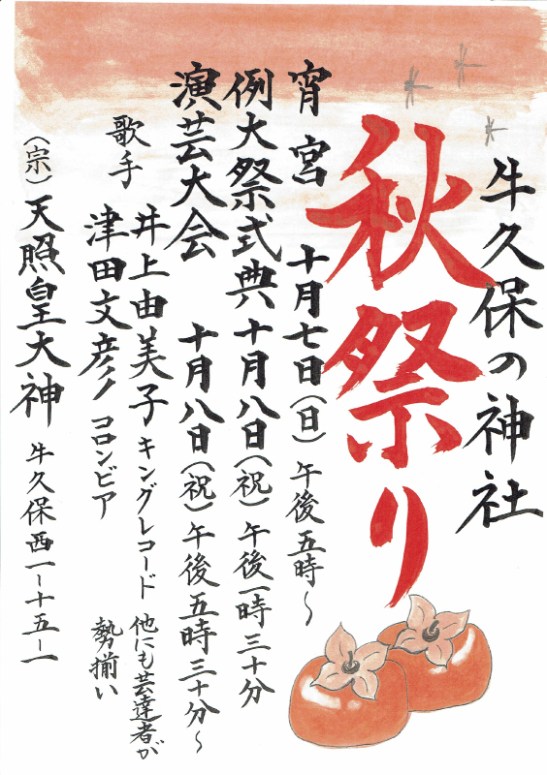 牛久保の神社
秋祭り
宵宮 十月七日(日) 午後五時〜
例大祭式典 十月八日(祝) 午後一時三十分
演芸大会 十月八日(祝) 午後五時三十分〜
歌手 井上由美子 キングレコード
津田文彦 コロンビア
他にも芸達者が
勢揃い
(宗)天照皇大神 牛久保西一-十五-一